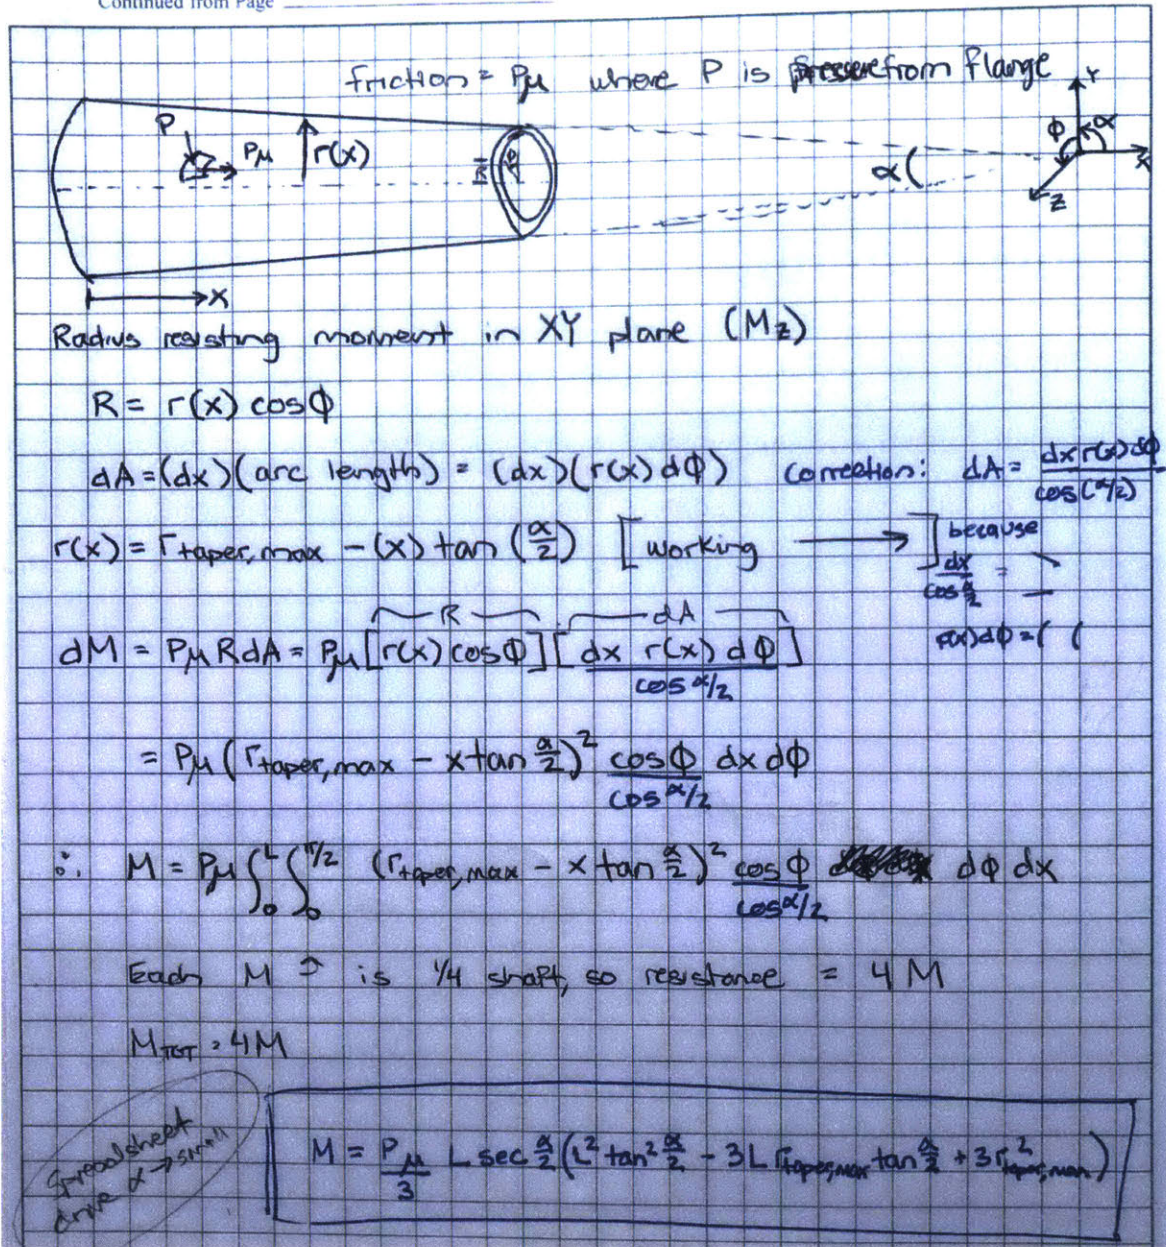 Continued from Page
friction = Pμ where P is pressure from flange
P
Pμ
r(x)
R
α
Y
φ
α
X
Z
x
Radius resisting moment in XY plane (Mz)
R = r(x) cosφ
dA = (dx)(arc length) = (dx)(r(x) dφ) correction: dA = dx r(x) dφ / cos(α/2)
r(x) = r_taper,max - (x) tan (α/2) [working → ] because
dx / cos α/2 =
r(x)dφ =
R dA
dM = Pμ R dA = Pμ [r(x) cosφ] [dx r(x) dφ / cos α/2]
= Pμ (r_taper,max - x tan α/2)² cosφ / cos α/2 dx dφ
∴ M = Pμ ∫₀ᴸ ∫₀^π/2 (r_taper,max - x tan α/2)² cosφ / cos α/2 dφ dx
Each M ↑ is 1/4 shaft, so resistance = 4M
M_TOT = 4M
Spreadsheet
drive α → small
M = Pμ/3 L sec α/2 (L² tan² α/2 - 3L r_taper,max tan α/2 + 3r²_taper,max)